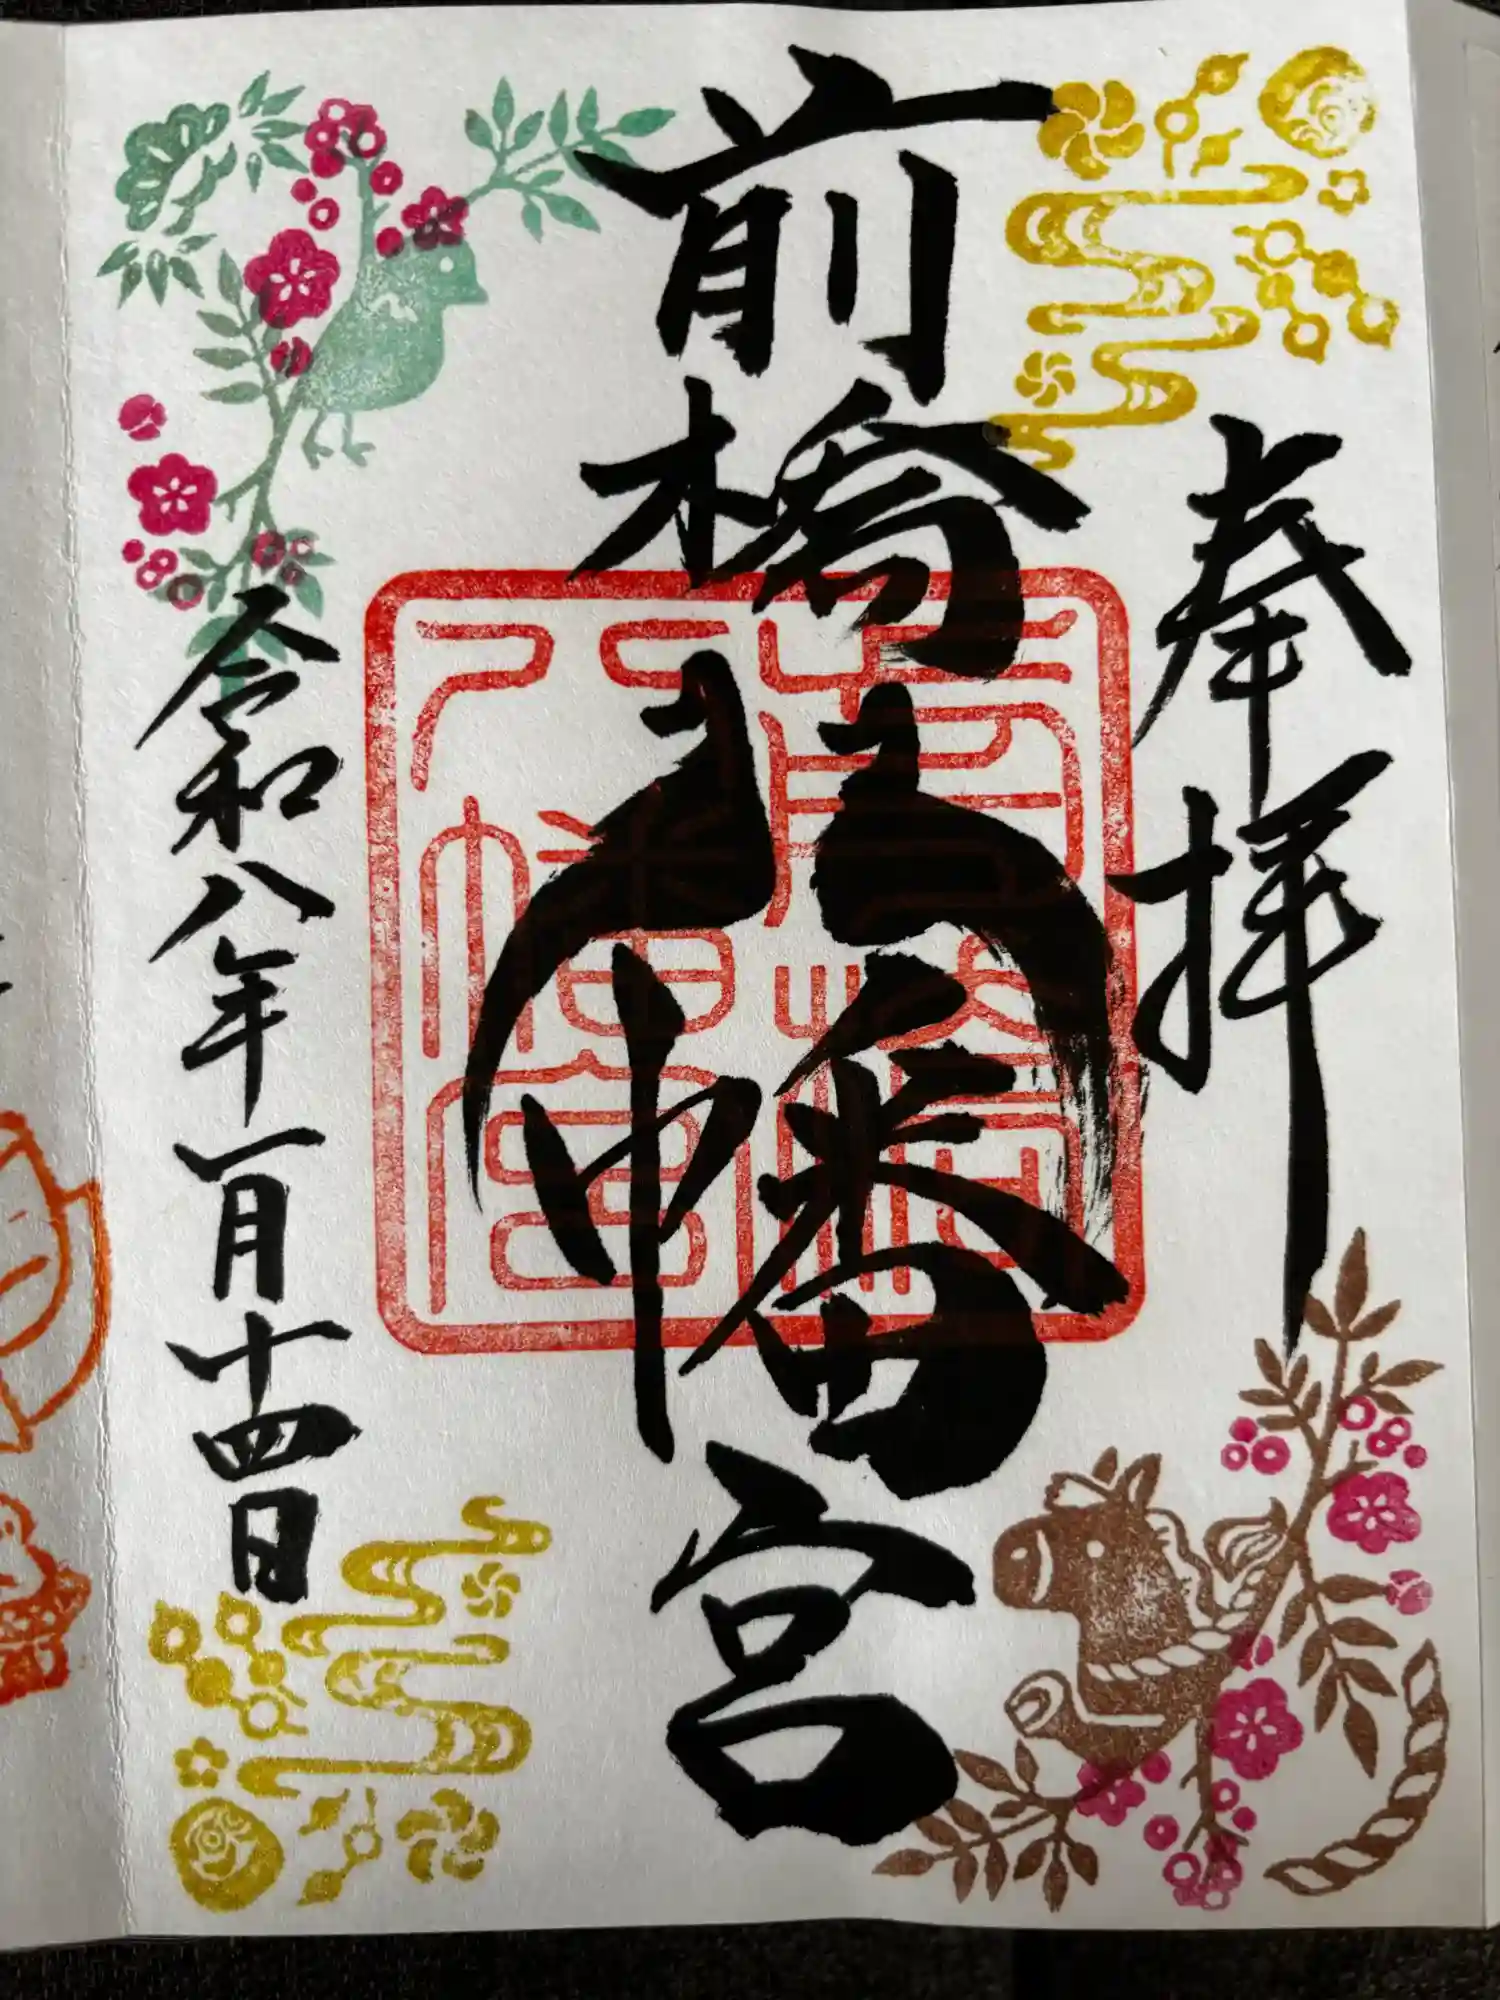 奉拝
前橋八幡宮
令和八年一月十四日
前橋八幡宮